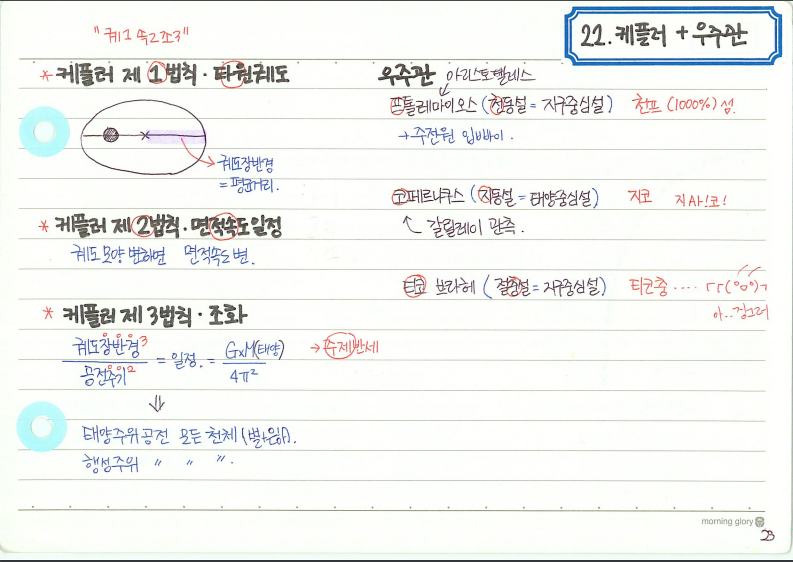 22. 케플러 + 우주관
"궤1 속2 조3"
* 케플러 제 1법칙 · 타원궤도
궤도장반경
= 평균거리.
* 케플러 제 2법칙 · 면적속도일정
궤도모양 변하면 면적속도변.
* 케플러 제 3법칙 · 조화
궤도장반경³ / 공전주기² = 일정. = G×M(태양) / 4π² → 주제반세
⇓
태양주위공전 모든 천체
행성주위 〃 〃 〃.
우주관 아리스토텔레스
프톨레마이오스 (천동설 = 지구중심설) 천프 (1000%) 섬.
→ 주전원 입빠이.
코페르니쿠스 (지동설 = 태양중심설) 지코 지사!코!
갈릴레이 관측.
티코 브라헤 (절충설 = 지구중심설) 티코중 ....
아.. 징그러
morning glory
23